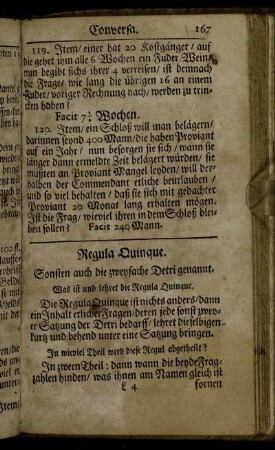 Conversa. 167
119. Item/ einer hat 20 Kostgänger/ auf
die gehet ihm alle 6 Wochen ein Fuder Wein/
nun begibt sichs ihrer 4 verreisen/ ist demnach
die Frage/ wie lang die übrigen 16 an einem
Fuder/ voriger Rechnung nach/ werden zu trin-
cken haben?
Facit 7½ Wochen.
120. Item/ ein Schloß will man belägern/
darinnen seynd 400 Mann/ die haben Proviant
auf ein Jahr/ nun besorgen sie sich/ wann sie
länger dann ermeldte Zeit belägert würden/ sie
müsten an Proviant Mangel leyden/ will der-
halben der Commendant etliche beurlauben/
und so viel behalten/ daß sie sich mit gedachter
Proviant 20 Monat lang erhalten mögen.
Ist die Frag/ wieviel ihren in dem Schloß blei-
ben sollen? Facit 240 Mann.
Regula Quinque.
Sonsten auch die zweyfache Detri genannt.
Was ist und lehret die Regula Quinque.
Die Regula Quinque ist nichts anders/ dann
ein Inhalt etlicher Fragen/ deren jede sonst zwey-
er Satzung der Detri bedarff/ lehret dieselbigen
kurtz und behend unter eine Satzung bringen.
In wieviel Theil wird diese Regul abgetheilt?
In zween Theil: dann wann die beyde Frag-
zahlen hinden/ was ihnen am Namen gleich ist
L 4 fornen